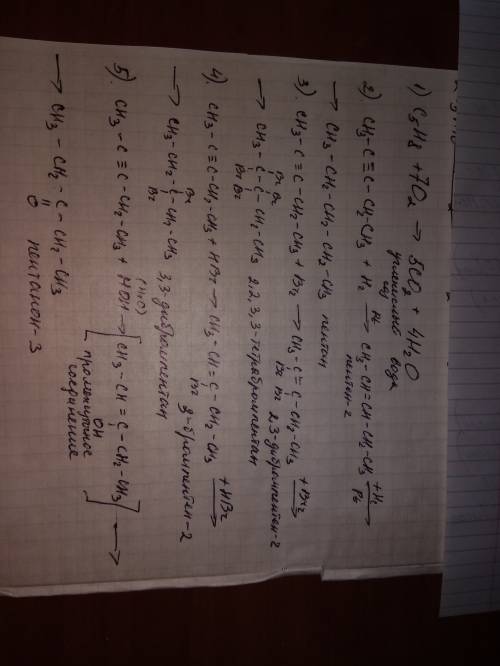 1) C5H8 + 7O2 → 5CO2 + 4H2O
углекислый газ вода
2) CH3-C≡C-CH2CH3 + H2 →Pt CH3-CH=CH-CH2-CH3 +H2→Pt
пентен-2
→ CH3-CH2-CH2-CH2-CH3 пентан
3) CH3-C≡C-CH2-CH3 + Br2 → CH3-C=C-CH2-CH3 +Br2→
Br Br 2,3-дибромпентен-2
Br Br
→ CH3-C-C-CH2-CH3 2,2,3,3-тетрабромпентан
Br Br
4) CH3-C≡C-CH2-CH3 + HBr → CH3-CH=C-CH2-CH3 +HBr→
Br 3-бромпентен-2
Br
→ CH3-CH2-C-CH2-CH3 3,3-дибромпентан
Br
(H2O)
5) CH3-C≡C-CH2-CH3 + HOH → [CH3-CH=C-CH2-CH3] →
OH
промежуточное
соединение
→ CH3-CH2-C-CH2-CH3
O пентанон-3